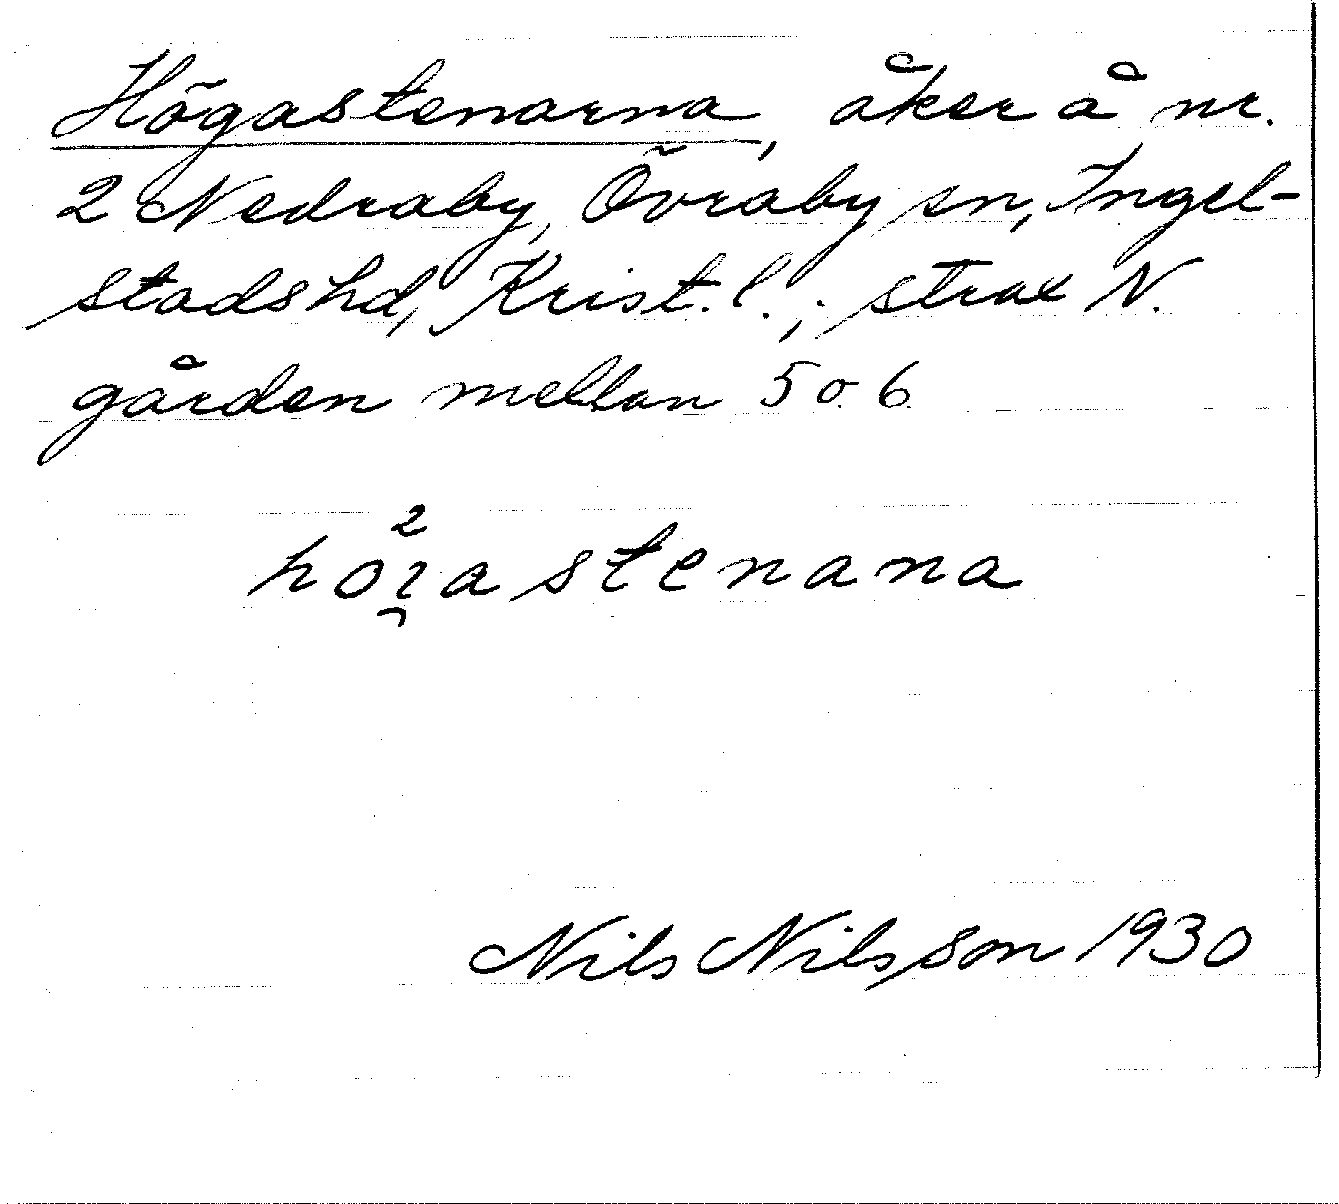 Högastenarna, åker å nr.
2 Nedraby, Övraby sn, Ingel-
stads hd, Krist. l.; strax N.
gården mellan 5 o. 6.
Nils Nilsson 1930